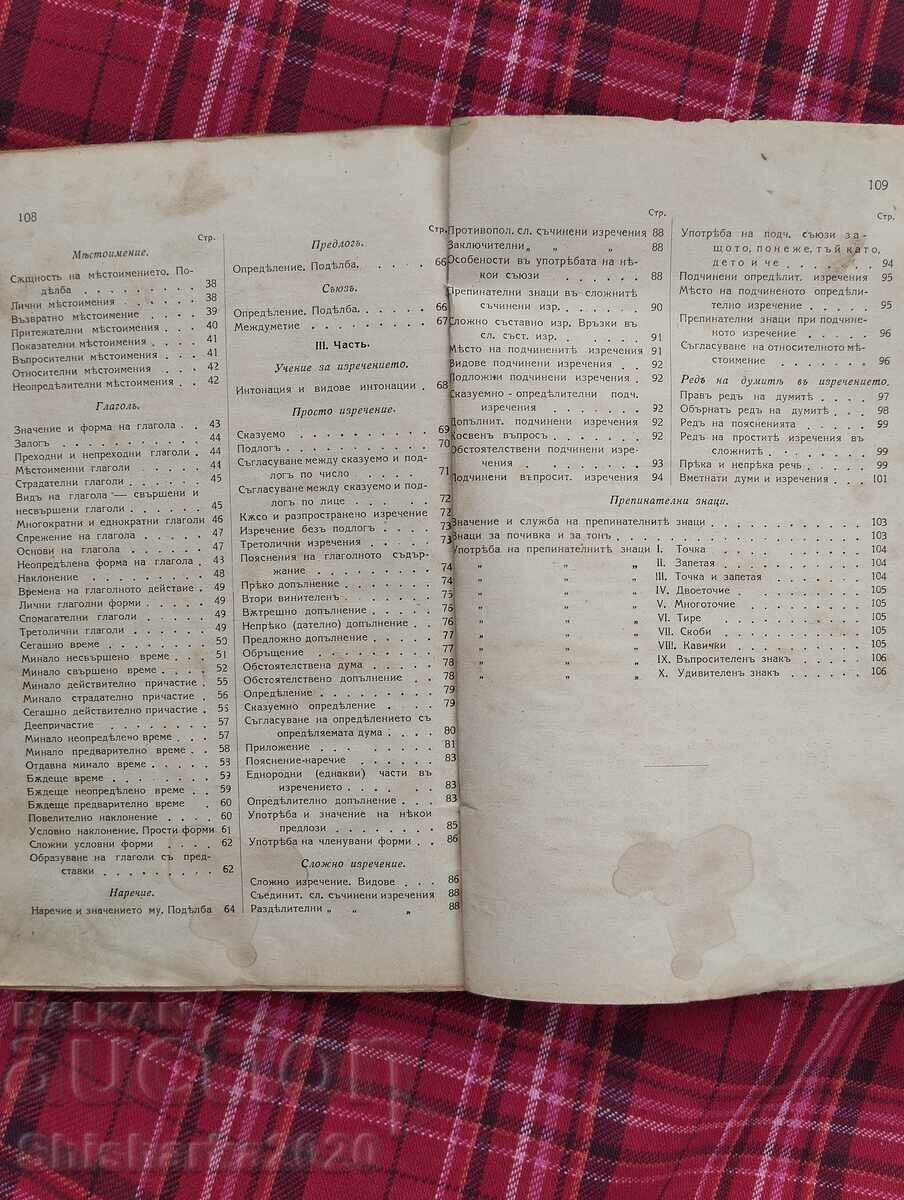 108
Стр.
Мѣстоимение.
Сѫщность на мѣстоимението. По-
дѣлба . . . . . . . . . 38
Лични мѣстоимения . . . . . 38
Възвратно мѣстоимение . . . . 39
Притежателни мѣстоимения . . . 40
Показателни мѣстоимения . . . 41
Въпросителни мѣстоимения . . . 41
Относителни мѣстоимения . . . 42
Неопредѣлителни мѣстоимения . . 42
Глаголъ.
Значение и форма на глагола . . 43
Залогъ . . . . . . . . . 44
Преходни и непреходни глаголи . 44
Мѣстоименни глаголи . . . . 44
Страдателни глаголи . . . . . 45
Видъ на глагола — свършени и
несвършени глаголи . . . . 45
Многократни и еднократни глаголи 46
Спрежение на глагола . . . . 47
Основи на глагола . . . . . 47
Неопредѣлена форма на глагола . 43
Наклонение . . . . . . . . 48
Времена на глаголното действие . 49
Лични глаголни форми . . . . 49
Спомагателни глаголи . . . . 49
Третолични глаголи . . . . . 49
Сегашно време . . . . . . . 50
Минало несвършено време . . . 51
Минало свършено време . . . . 52
Минало действително причастие . 55
Минало страдателно причастие . 56
Сегашно действително причастие . 55
Деепричастие . . . . . . . 57
Минало неопредѣлено време . . . 57
Минало предварително време . . 58
Отдавна минало време . . . . 53
Бѫдеще време . . . . . . . 59
Бѫдеще неопредѣлено време . . . 59
Бѫдеще предварително време . . 60
Повелително наклонение . . . . 60
Условно наклонение. Прости форми 61
Сложни условни форми . . . . 62
Образуване на глаголи съ пред-
ставки . . . . . . . . . 62
Наречие.
Наречие и значението му. Подѣлба 64
Стр.
Предлогъ.
Опредѣление. Подѣлба. . . . . 66
Съюзъ.
Опредѣление. Подѣлба. . . . . 66
Междуметие . . . . . . . . 67
III. Часть.
Учение за изречението.
Интонация и видове интонации . . 68
Просто изречение.
Сказуемо . . . . . . . . . 69
Подлогъ . . . . . . . . . 70
Съгласуване между сказуемо и под-
логъ по число . . . . . . 71
Съгласуване между сказуемо и под-
логъ по лице . . . . . . . 72
Кѫсо и разпространено изречение 72
Изречение безъ подлогъ . . . . 73
Третолични изречения . . . . . 73
Пояснения на глаголното съдър-
жание . . . . . . . . . 74
Прѣко допълнение . . . . . . 74
Втори винителенъ . . . . . . 75
Вѫтрешно допълнение . . . . . 76
Непрѣко (дателно) допълнение . . 76
Предложно допълнение . . . . 77
Обръщение . . . . . . . . 77
Обстоятелствена дума . . . . . 78
Обстоятелствено допълнение . . . 78
Опредѣление . . . . . . . . 79
Сказуемно опредѣление . . . . 79
Съгласуване на опредѣлението съ
опредѣляемата дума . . . . . 80
Приложение . . . . . . . . 81
Пояснение-наречие . . . . . . 83
Еднородни (еднакви) части въ
изречението . . . . . . . 83
Опредѣлително допълнение . . . 83
Употрѣба и значение на нѣкои
предлози . . . . . . . . 85
Употрѣба на членувани форми . . 86
Сложно изречение.
Сложно изречение. Видове . . . 86
Съединит. сл. съчинени изречения 88
Раздѣлителни „ „ „ 88
109
Стр.
Противопол. сл. съчинени изречения 88
Заключителни „ „ „ 88
Особености въ употрѣбата на нѣ-
кои съюзи . . . . . . . 88
Препинателни знаци въ сложнитѣ
съчинени изр. . . . . . . 90
Сложно съставно изр. Връзки въ
сл. съст. изр. . . . . . . 91
Мѣсто на подчиненитѣ изречения 91
Видове подчинени изречения . . 92
Подложни подчинени изречения . 92
Сказуемно - опредѣлителни подч.
изречения . . . . . . . 92
Допълнит. подчинени изречения 92
Косвенъ въпросъ . . . . . . 92
Обстоятелствени подчинени изре-
чения . . . . . . . . . 93
Подчинени въпросит. изречения 94
Стр.
Употрѣба на подч. съюзи за-
щото, понеже, тъй като,
дето и че . . . . . . . 94
Подчинени опредѣлит. изречения 95
Мѣсто на подчиненото опредѣли-
телно изречение . . . . . 95
Препинателни знаци при подчине-
ното изречение . . . . . . 96
Съгласуване на относителното мѣ-
стоимение . . . . . . . 96
Редъ на думитѣ въ изречението.
Правъ редъ на думитѣ . . . . 97
Обърнатъ редъ на думитѣ . . . 98
Редъ на поясненията . . . . . 99
Редъ на проститѣ изречения въ
сложнитѣ . . . . . . . . 99
Прѣка и непрѣка речь . . . . 99
Вметнати думи и изречения . . . 101
Препинателни знаци.
Значение и служба на препинателнитѣ знаци . . . . . . . . 103
Знаци за почивка и за тонъ . . . . . . . . . . . . . 103
Употрѣба на препинателнитѣ знаци I. Точка . . . . . . . 104
„ „ „ II. Запетая . . . . . . 104
„ „ „ III. Точка и запетая . . . . 104
„ „ „ IV. Двоеточие . . . . . . 105
„ „ „ V. Многоточие . . . . . . 105
„ „ „ VI. Тире . . . . . . . 105
„ „ „ VII. Скоби . . . . . . . 105
„ „ „ VIII. Кавички . . . . . . 105
„ „ „ IX. Въпросителенъ знакъ . . . 106
„ „ „ X. Удивителенъ знакъ . . . . 106
BALKAN
auction
Shisharka2020